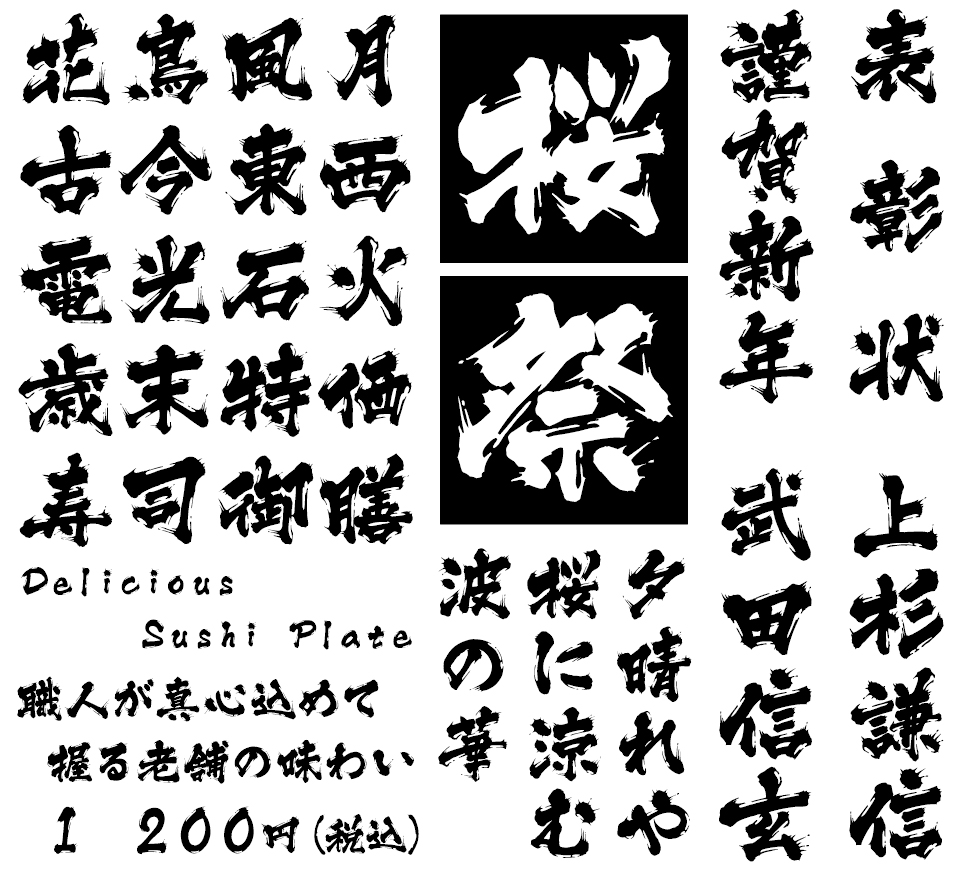 花鳥風月
古今東西
電光石火
歳末特価
寿司御膳
Delicious
Sushi Plate
職人が真心込めて
握る老舗の味わい
1 200円(税込)
桜
祭
夕晴れや
桜に涼む
波の華
表彰状
謹賀新年
上杉謙信
武田信玄